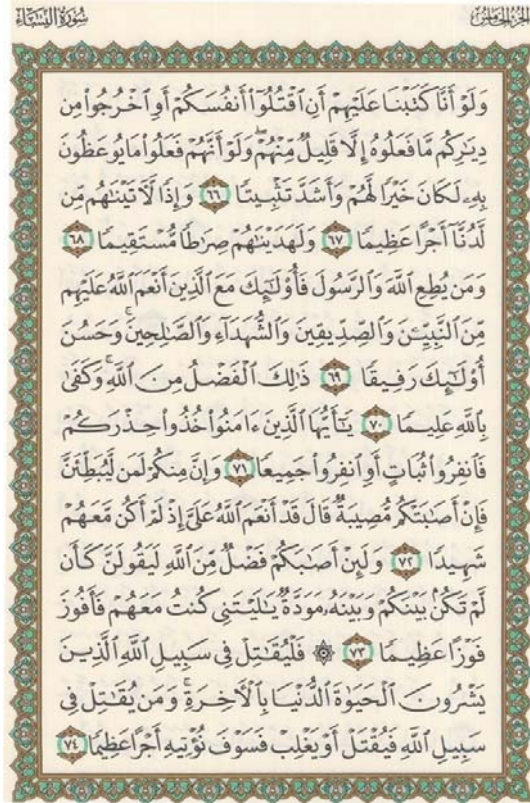 الجزء الخامس
سورة النساء
وَلَوْ أَنَّا كَتَبْنَا عَلَيْهِمْ أَنِ ٱقْتُلُوٓا۟ أَنفُسَكُمْ أَوِ ٱخْرُجُوا۟ مِن
دِيَـٰرِكُم مَّا فَعَلُوهُ إِلَّا قَلِيلٌ مِّنْهُمْ ۖ وَلَوْ أَنَّهُمْ فَعَلُوا۟ مَا يُوعَظُونَ
بِهِۦ لَكَانَ خَيْرًا لَّهُمْ وَأَشَدَّ تَثْبِيتًا ٦٦ وَإِذًا لَّـَٔاتَيْنَـٰهُم مِّن
لَّدُنَّآ أَجْرًا عَظِيمًا ٦٧ وَلَهَدَيْنَـٰهُمْ صِرَٰطًا مُّسْتَقِيمًا ٦٨
وَمَن يُطِعِ ٱللَّهَ وَٱلرَّسُولَ فَأُو۟لَـٰٓئِكَ مَعَ ٱلَّذِينَ أَنْعَمَ ٱللَّهُ عَلَيْهِم
مِّنَ ٱلنَّبِيِّـۧنَ وَٱلصِّدِّيقِينَ وَٱلشُّهَدَآءِ وَٱلصَّـٰلِحِينَ ۚ وَحَسُنَ
أُو۟لَـٰٓئِكَ رَفِيقًا ٦٩ ذَٰلِكَ ٱلْفَضْلُ مِنَ ٱللَّهِ ۚ وَكَفَىٰ
بِٱللَّهِ عَلِيمًا ٧٠ يَـٰٓأَيُّهَا ٱلَّذِينَ ءَامَنُوا۟ خُذُوا۟ حِذْرَكُمْ
فَٱنفِرُوا۟ ثُبَاتٍ أَوِ ٱنفِرُوا۟ جَمِيعًا ٧١ وَإِنَّ مِنكُمْ لَمَن لَّيُبَطِّئَنَّ
فَإِنْ أَصَـٰبَتْكُم مُّصِيبَةٌ قَالَ قَدْ أَنْعَمَ ٱللَّهُ عَلَىَّ إِذْ لَمْ أَكُن مَّعَهُمْ
شَهِيدًا ٧٢ وَلَئِنْ أَصَـٰبَكُمْ فَضْلٌ مِّنَ ٱللَّهِ لَيَقُولَنَّ كَأَن
لَّمْ تَكُنۢ بَيْنَكُمْ وَبَيْنَهُۥ مَوَدَّةٌ يَـٰلَيْتَنِى كُنتُ مَعَهُمْ فَأَفُوزَ
فَوْزًا عَظِيمًا ٧٣ ۞ فَلْيُقَـٰتِلْ فِى سَبِيلِ ٱللَّهِ ٱلَّذِينَ
يَشْرُونَ ٱلْحَيَوٰةَ ٱلدُّنْيَا بِٱلْـَٔاخِرَةِ ۚ وَمَن يُقَـٰتِلْ فِى
سَبِيلِ ٱللَّهِ فَيُقْتَلْ أَوْ يَغْلِبْ فَسَوْفَ نُؤْتِيهِ أَجْرًا عَظِيمًا ٧٤